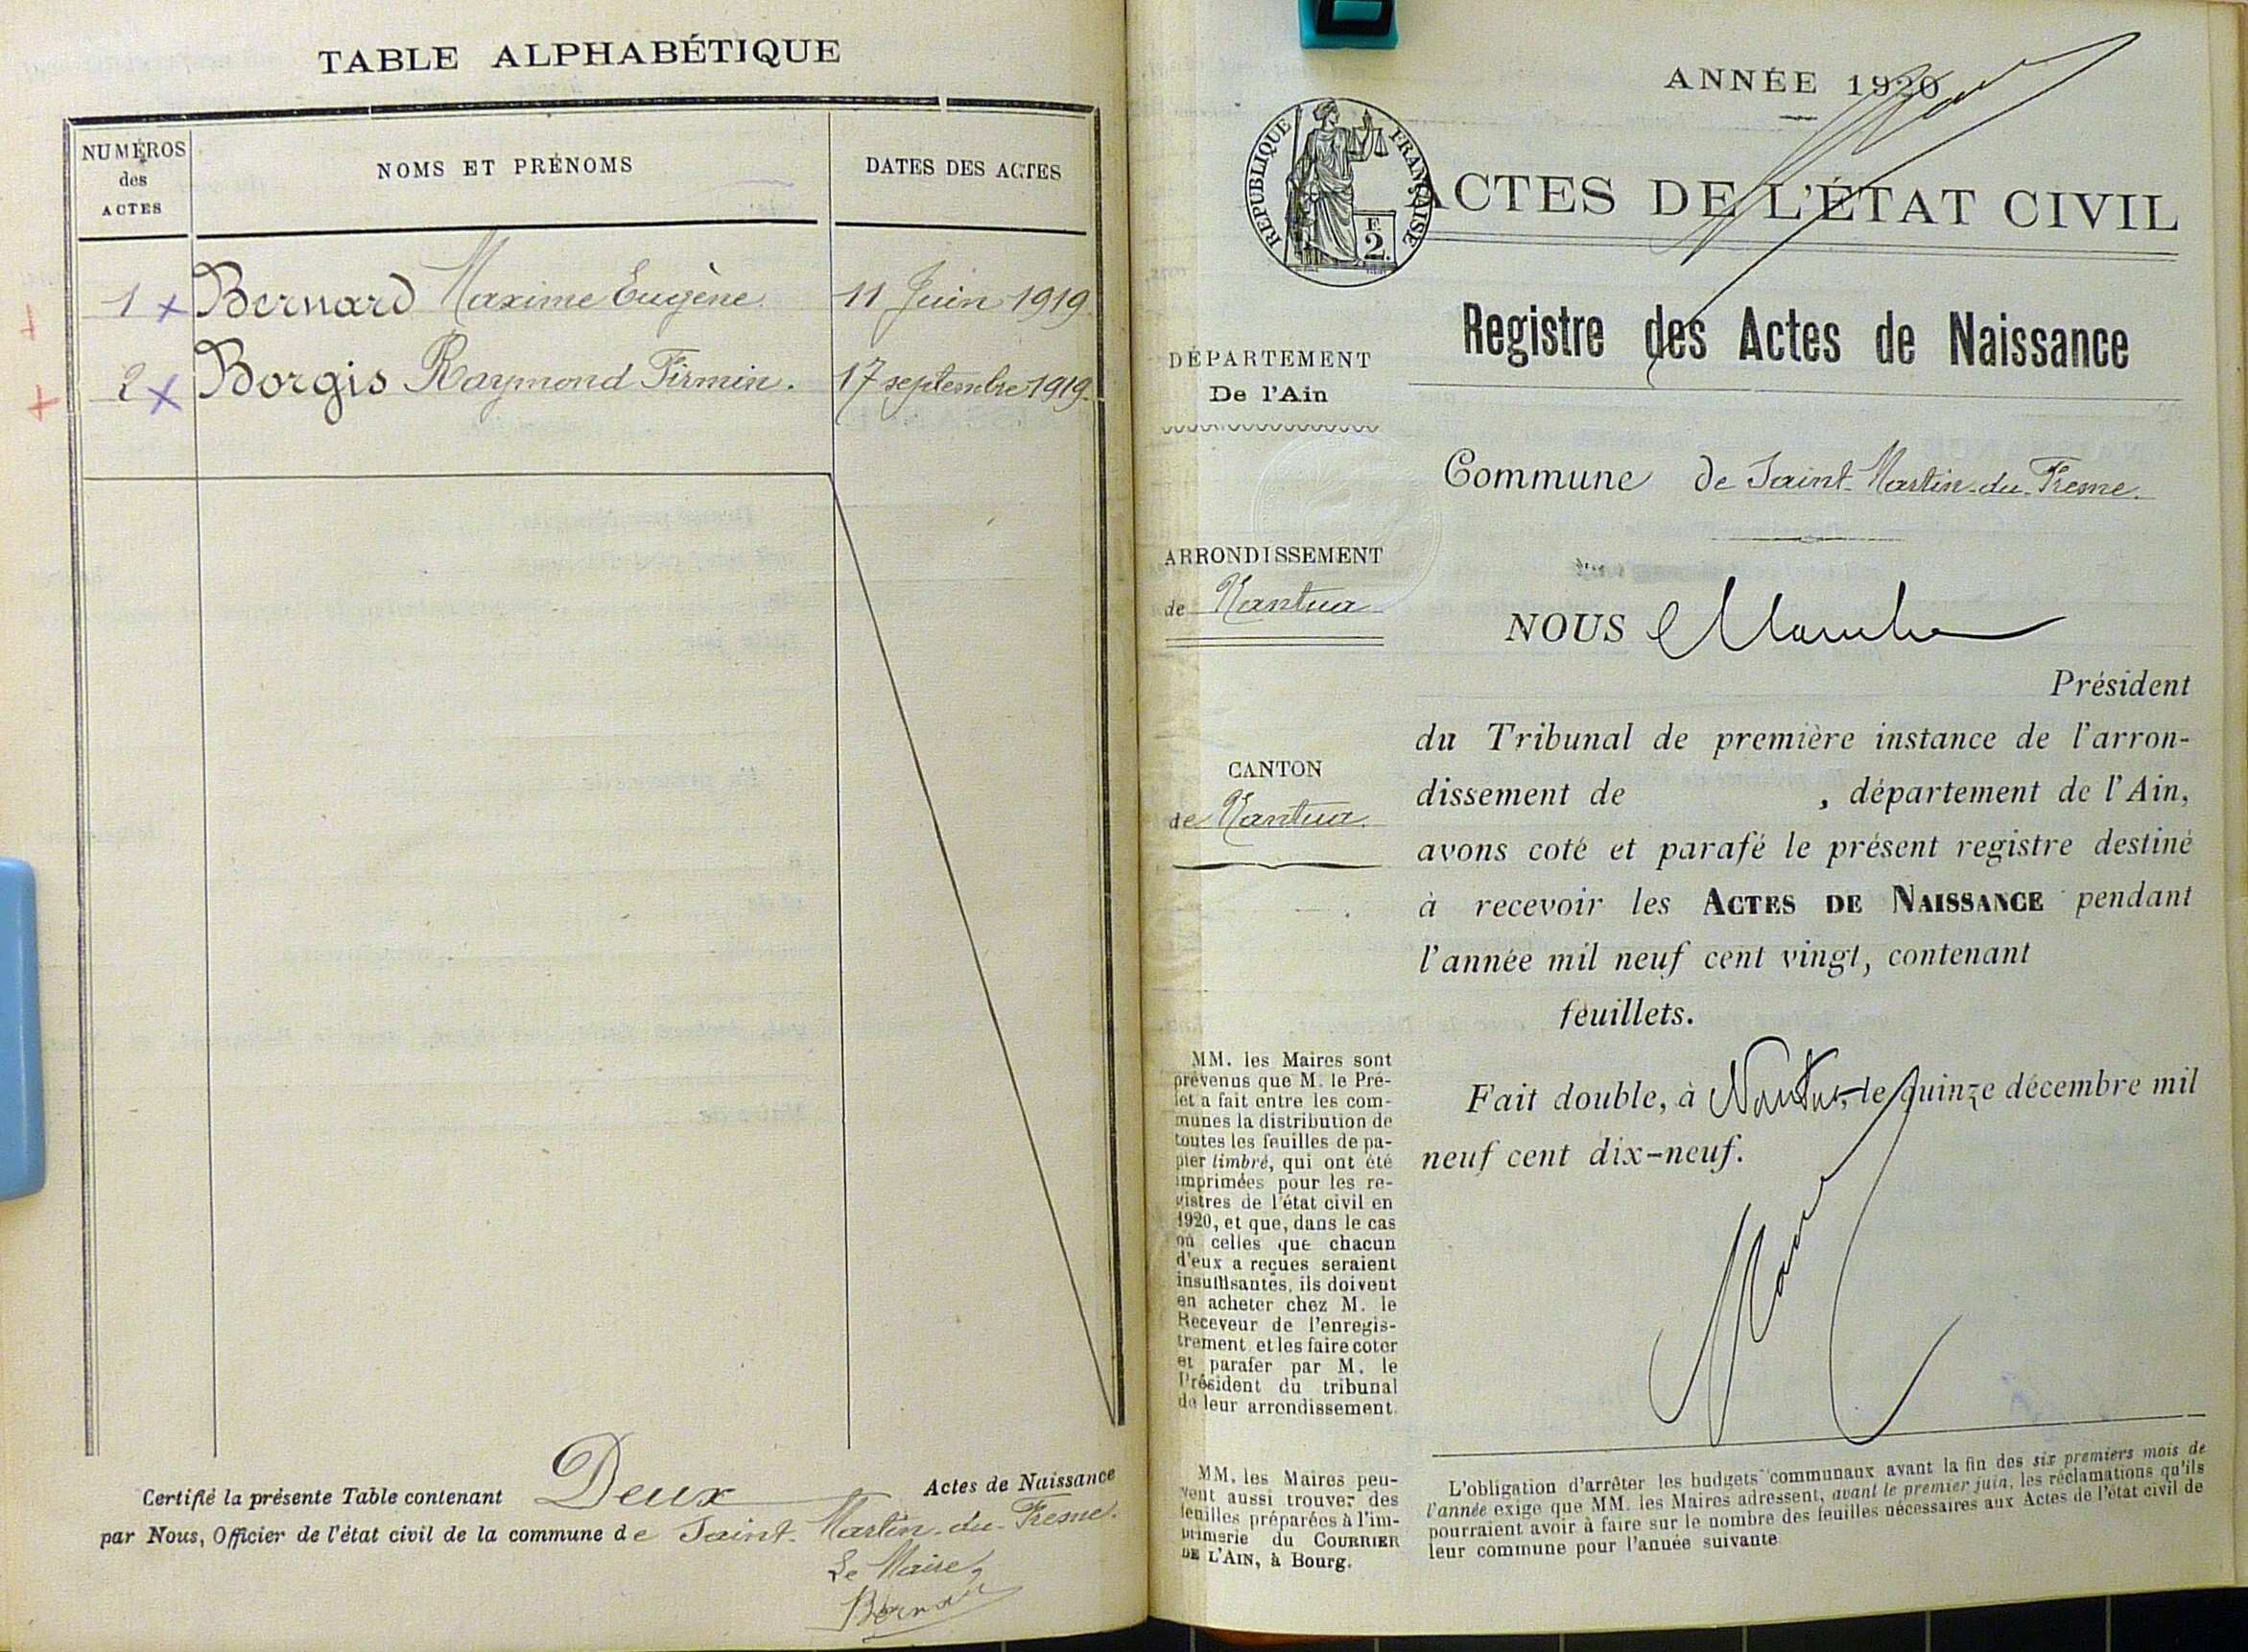 TABLE ALPHABÉTIQUE
NUMÉROS
des
ACTES
NOMS ET PRÉNOMS
DATES DES ACTES
1 x Bernard Maxime Eugène. 11 Juin 1919.
2 x Borgis Raymond Firmin. 17 septembre 1919.
Certifié la présente Table contenant Deux Actes de Naissance
par Nous, Officier de l'état civil de la commune de Saint-Martin-du-Fresne.
Le Maire,
ANNÉE 1920
RÉPUBLIQUE FRANÇAISE
F.
2.
ACTES DE L'ÉTAT CIVIL
Registre des Actes de Naissance
DÉPARTEMENT
De l'Ain
Commune de Saint-Martin-du-Fresne.
ARRONDISSEMENT
de Nantua
NOUS
Président
du Tribunal de première instance de l'arron-
dissement de , département de l'Ain,
avons coté et parafé le présent registre destiné
à recevoir les ACTES DE NAISSANCE pendant
l'année mil neuf cent vingt, contenant
feuillets.
CANTON
de Nantua
Fait double, à Nantua, le quinze décembre mil
neuf cent dix-neuf.
MM. les Maires sont
prévenus que M. le Pré-
fet a fait entre les com-
munes la distribution de
toutes les feuilles de pa-
pier timbré, qui ont été
imprimées pour les re-
gistres de l'état civil en
1920, et que, dans le cas
où celles que chacun
d'eux a reçues seraient
insuffisantes, ils doivent
en acheter chez M. le
Receveur de l'enregis-
trement et les faire coter
et parafer par M. le
Président du tribunal
de leur arrondissement.
MM. les Maires peu-
vent aussi trouver des
feuilles préparées à l'im-
primerie du COURRIER
DE L'AIN, à Bourg.
L'obligation d'arrêter les budgets communaux avant la fin des six premiers mois de
l'année exige que MM. les Maires adressent, avant le premier juin, les réclamations qu'ils
pourraient avoir à faire sur le nombre des feuilles nécessaires aux Actes de l'état civil de
leur commune pour l'année suivante